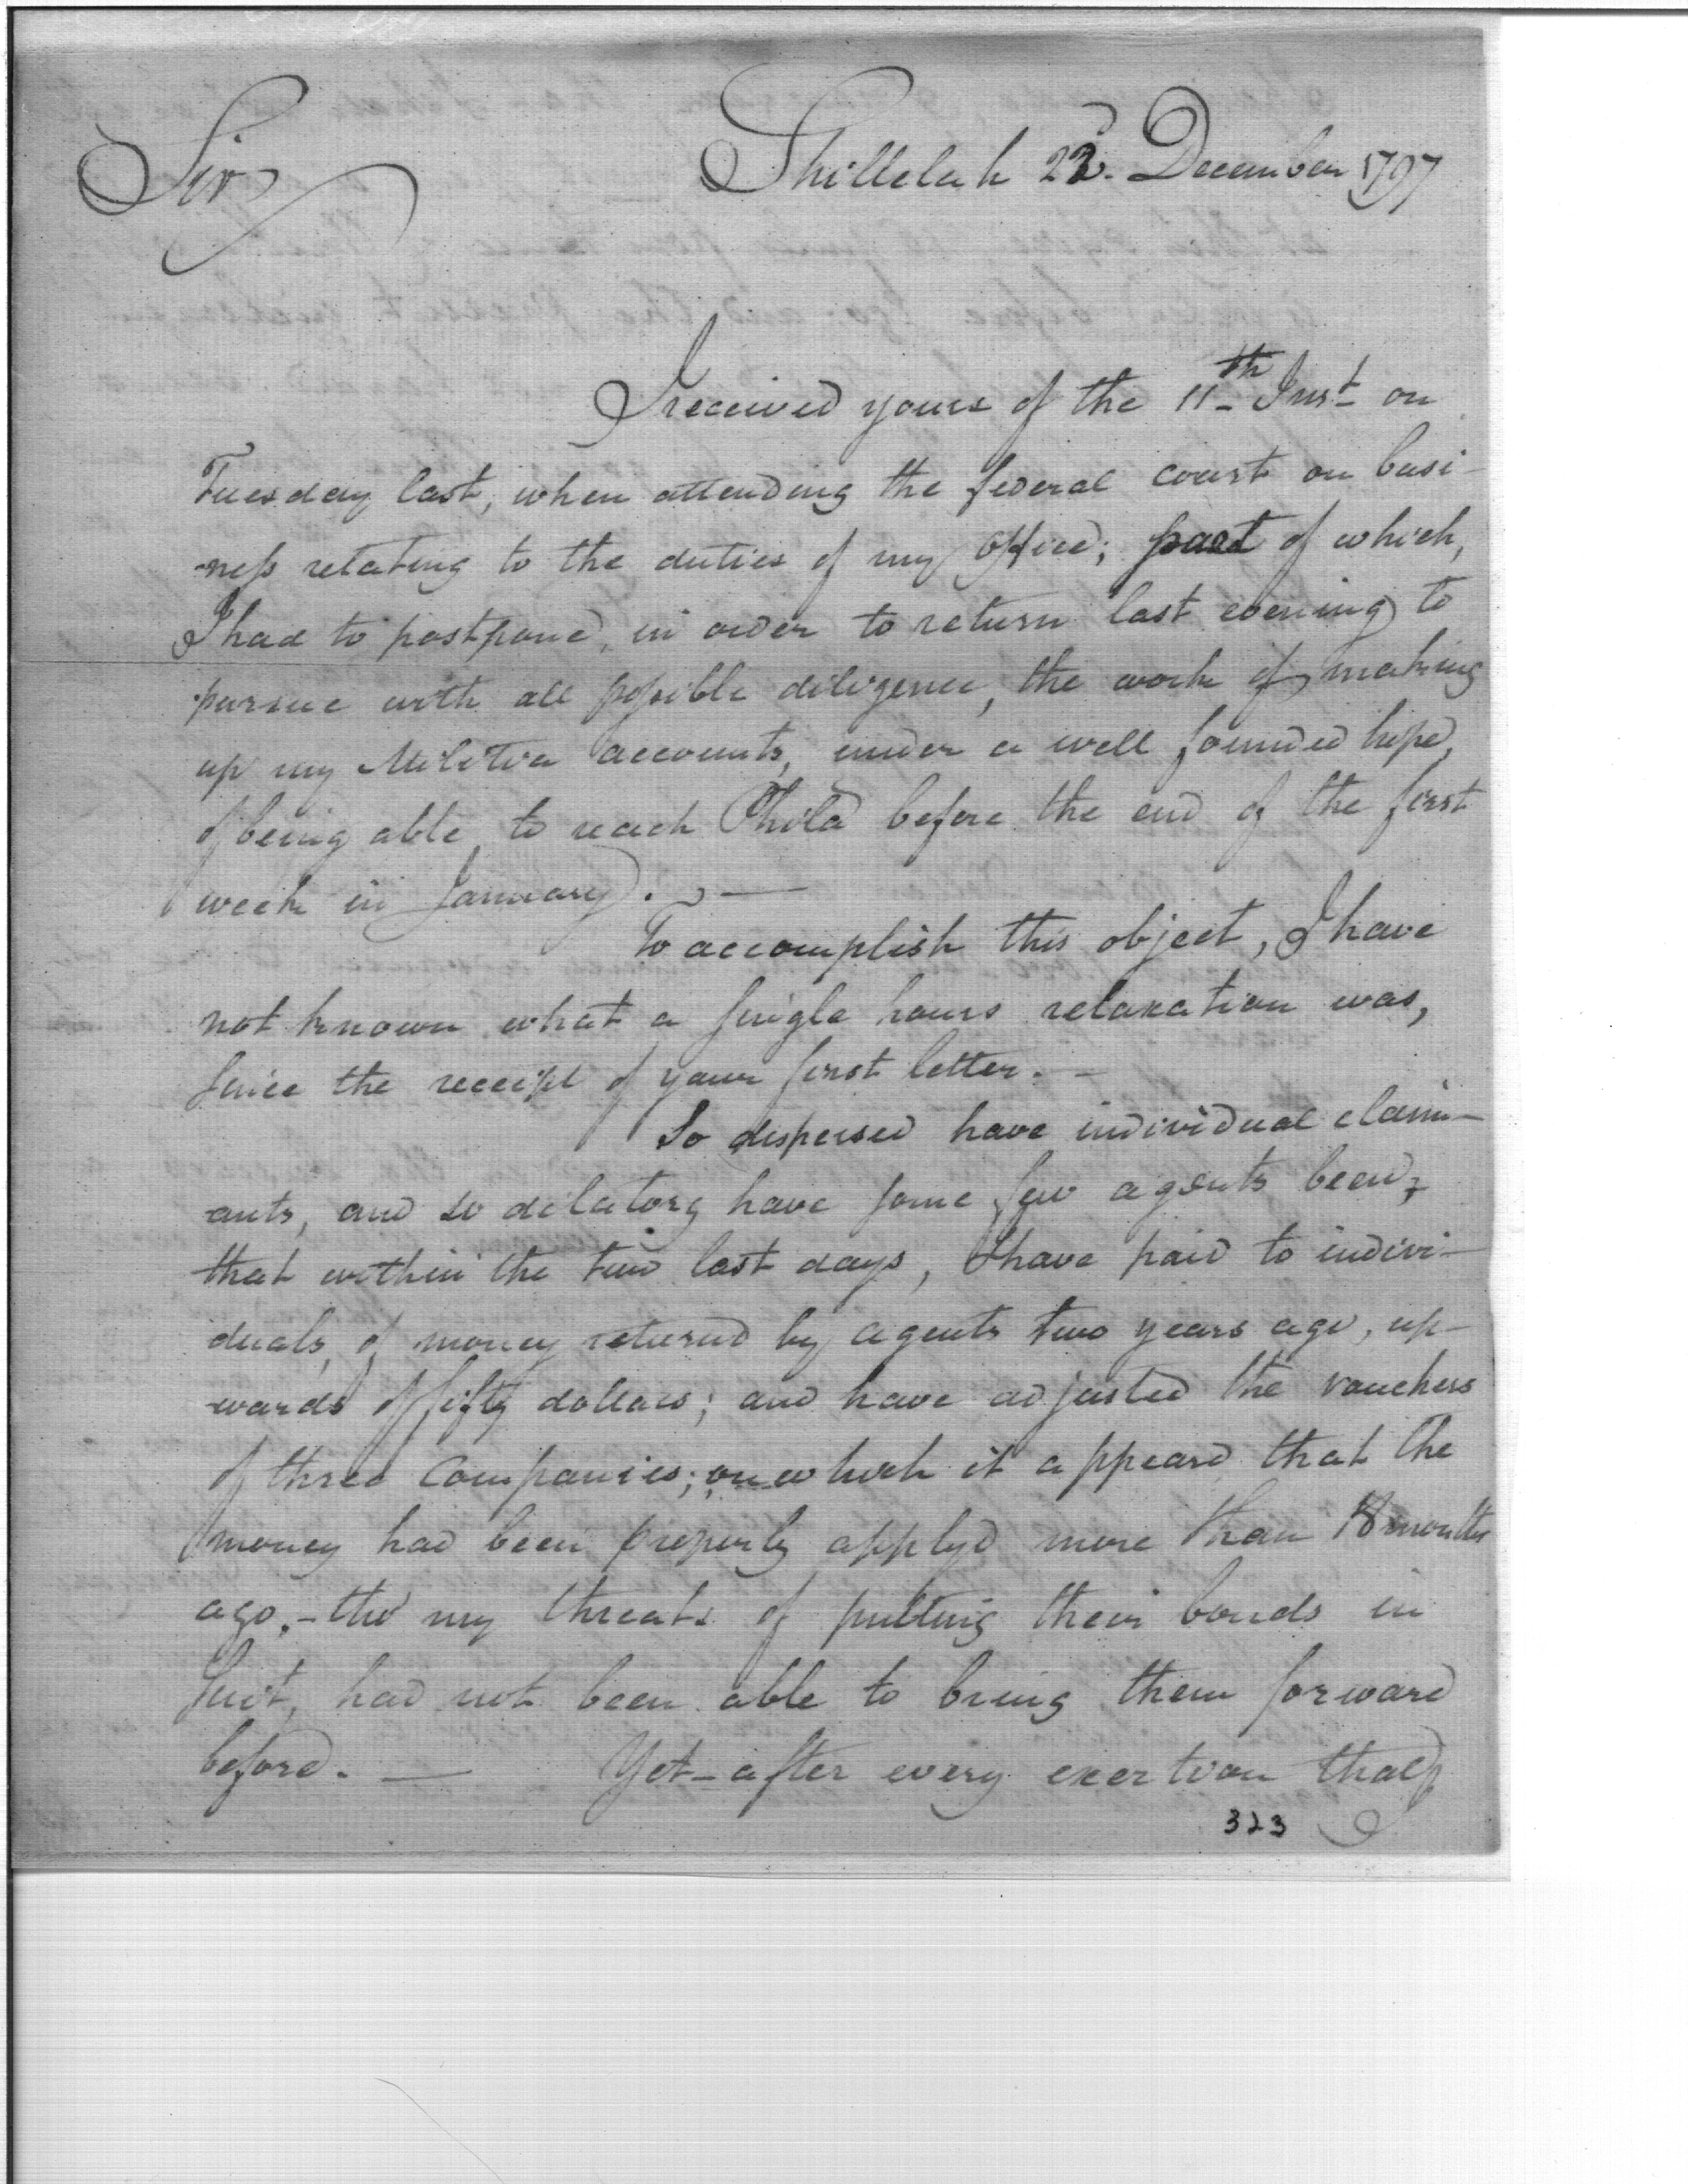 Sir
Shillelah 22d. December 1797
I received yours of the 11th Inst on
Tuesday last, when attending the federal court on busi-
-ness relating to the duties of my Office; part of which,
I had to postpone, in order to return last evening to
pursue with all possible diligence, the work of making
up my Militia accounts, under a well founded hope,
of being able to reach Philad before the end of the first
week in January. —
To accomplish this object, I have
not known what a single hours relaxation was,
since the receipt of your first letter. -
So dispersed have individual claim-
ants, and so dilatory have some few agents been,
that within the two last days, I have paid to indivi-
duals, of money returned by agents two years ago, up-
wards of fifty dollars; and have adjusted the vouchers
of three Companies; on which it appeard that the
money had been properly applyd more than 18 months
ago. - tho my threats of putting their bonds in
suit, had not been able to bring them forward
before. — Yet - after every exertion that
I
323